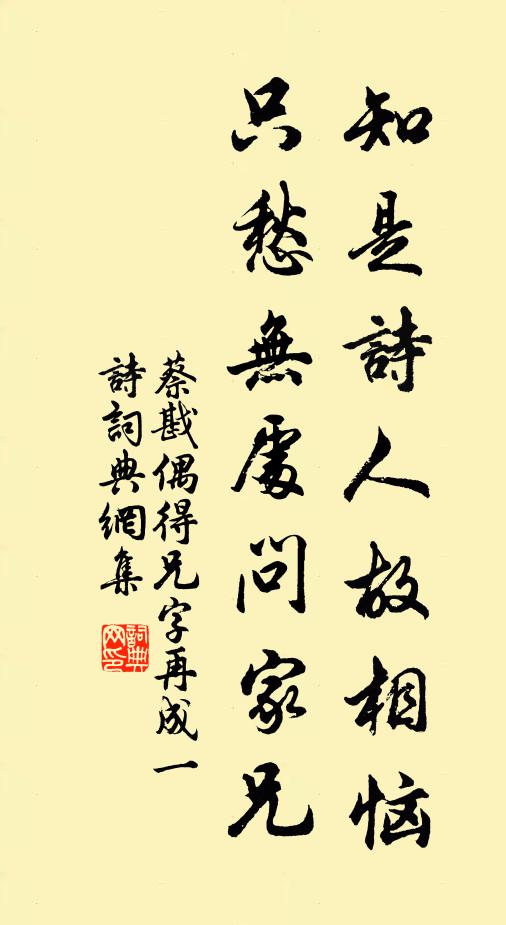 知是詩人故相恼
只愁無處問家兄
蔡戡偶得兄字再成一
詩詞典網集
詞典
网印